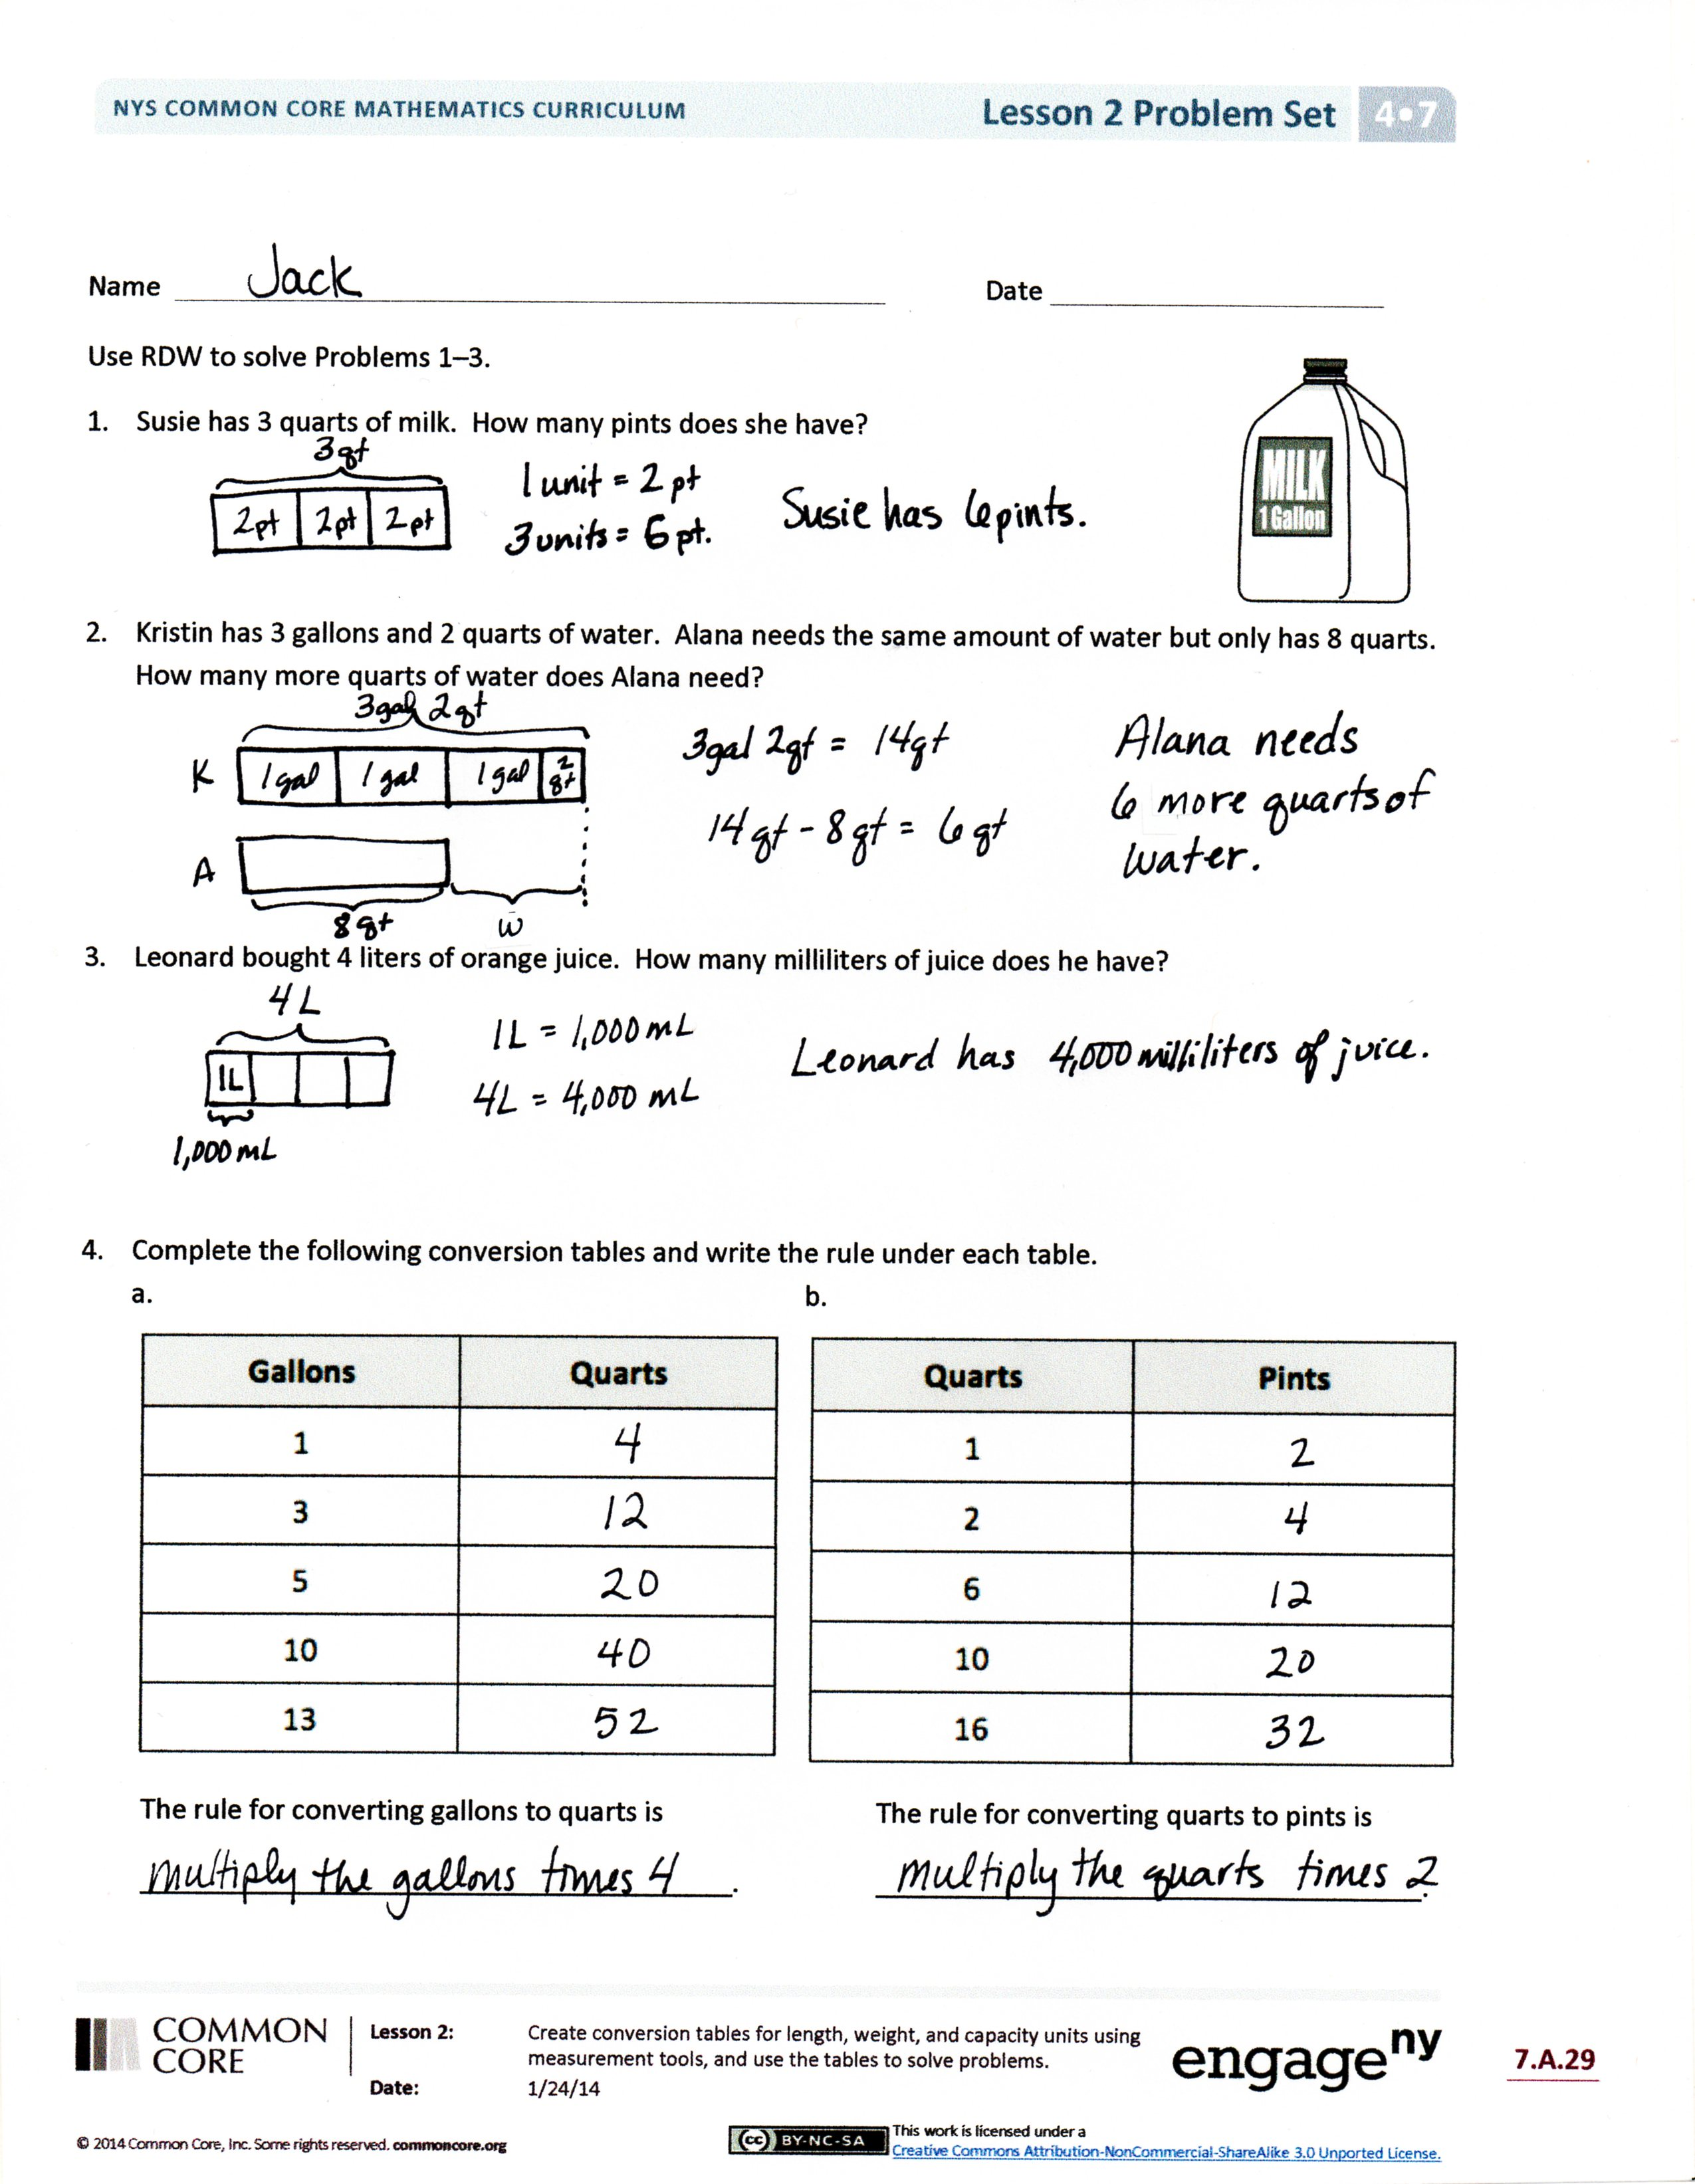 NYS COMMON CORE MATHEMATICS CURRICULUM Lesson 2 Problem Set 4•7
Name Jack Date
Use RDW to solve Problems 1–3.
MILK
1 Gallon
1. Susie has 3 quarts of milk. How many pints does she have?
3qt
2pt 2pt 2pt
1 unit = 2 pt
3 units = 6 pt.
Susie has 6 pints.
2. Kristin has 3 gallons and 2 quarts of water. Alana needs the same amount of water but only has 8 quarts.
How many more quarts of water does Alana need?
3gal 2qt
K 1gal 1gal 1gal 2 qt
A
8qt w
3gal 2qt = 14qt
14qt - 8qt = 6qt
Alana needs
6 more quarts of
water.
3. Leonard bought 4 liters of orange juice. How many milliliters of juice does he have?
4L
1L
1,000 mL
1L = 1,000 mL
4L = 4,000 mL
Leonard has 4,000 milliliters of juice.
4. Complete the following conversion tables and write the rule under each table.
a. b.
Gallons Quarts Quarts Pints
1 4 1 2
3 12 2 4
5 20 6 12
10 40 10 20
13 52 16 32
The rule for converting gallons to quarts is
multiply the gallons times 4.
The rule for converting quarts to pints is
multiply the quarts times 2.
COMMON
CORE
Lesson 2: Create conversion tables for length, weight, and capacity units using
measurement tools, and use the tables to solve problems.
Date: 1/24/14
engageny
7.A.29
© 2014 Common Core, Inc. Some rights reserved. commoncore.org
cc BY-NC-SA
This work is licensed under a
Creative Commons Attribution-NonCommercial-ShareAlike 3.0 Unported License.